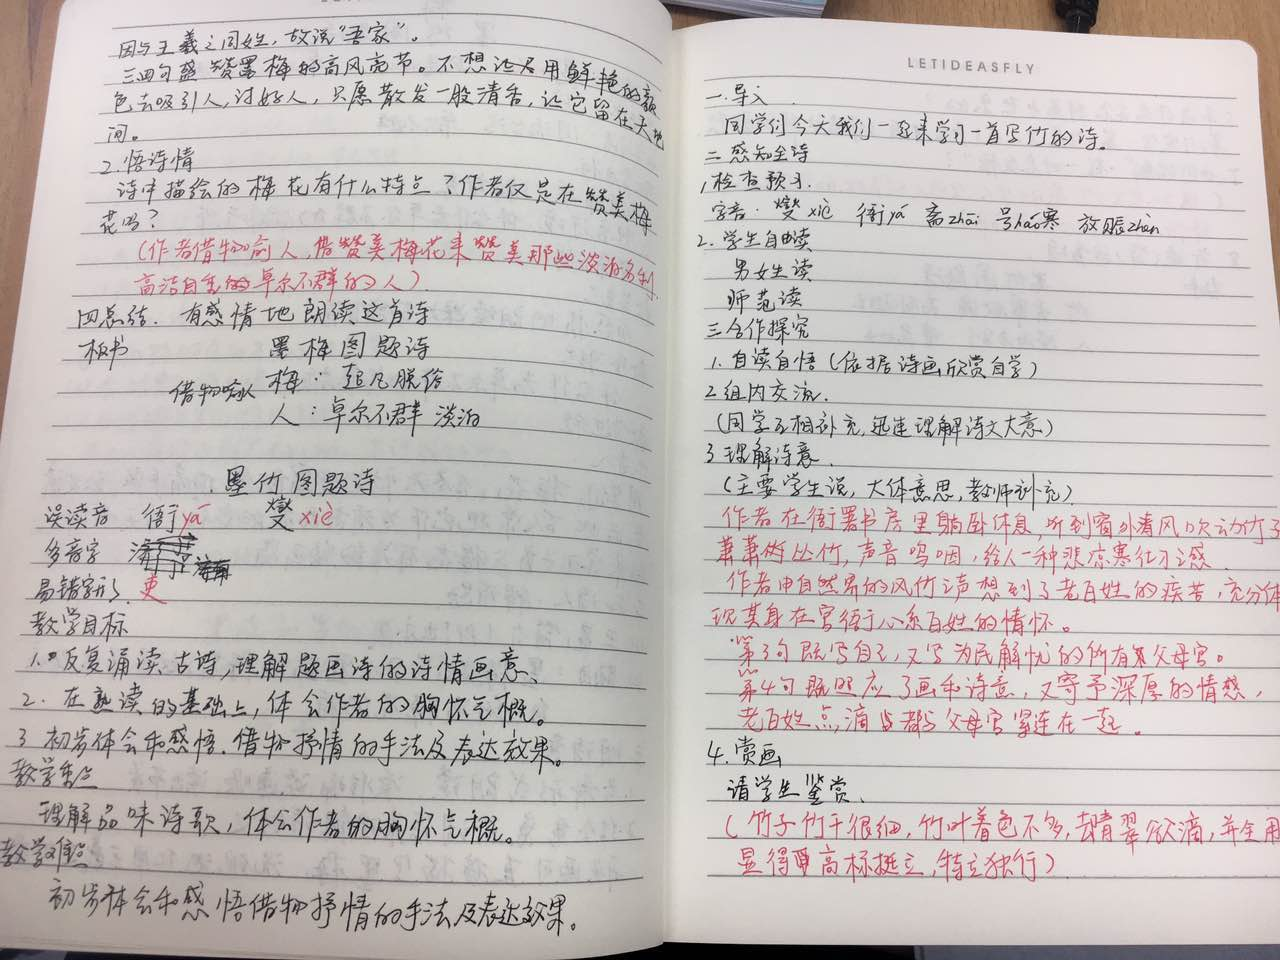 因与王羲之同姓，故说“吾家”。
三四句盛赞墨梅的高风亮节。不想让用鲜艳的颜
色去吸引人，讨好人，只愿散发一股清香，让它留在天地
间。
2.悟诗情
诗中描绘的梅花有什么特点？作者仅是在赞美梅
花吗？
（作者借物喻人，借赞美梅花来赞美那些淡泊名利，
高洁自的卓尔不群的人）
四总结．有感情地朗读这首诗
板书 墨梅图题诗
借物喻人 梅：超凡脱俗
人：卓尔不群 淡泊
墨竹图题诗
误读音 衙yá 燮xiè
多音字
易错字形 吏
教学目标
1.反复诵读古诗，理解题画诗的诗情画意、
2.在熟读的基础上，体会作者的胸怀气概。
3 初步体会和感悟，借物抒情的手法及表达效果。
教学重点
理解品味诗歌，体会作者的胸怀气概。
教学难点
初步体会和感悟借物抒情的手法及表达效果。
LETIDEASFLY
一.导入.
同学们今天我们一起来学习一首写竹的诗。
二 感知全诗
1,检查预习.
字音：燮xiè 衙yá 斋zhāi 号háo寒 放赈zhèn
2.学生自由读
男女生读
师范读
三 合作探究
1.自读自悟（依据诗画欣赏自学）
2 组内交流.
（同学互相补充，迅速理解诗文大意）
3 理解诗意.
（主要学生说，大体意思，教师补充）
作者在衙署书房里躺卧休息，听到窗外清风吹动竹子
萧萧丛竹，声音呜咽，给人一种悲凉寒之感.
作者由自然界的风竹声想到了老百姓的疾苦，充分体
现其身在官衙心系百姓的情怀。
第3句既写自己，又写为民解忧的所有父母官。
第4句既照应了画和诗意，又寄予深厚的情感，
老百姓点滴都与父母官紧连在一起。
4.赏画
请学生鉴赏、
（竹子竹干很细，竹叶着色不多，却青翠欲滴，并全用
显得高标挺立，特立独行）